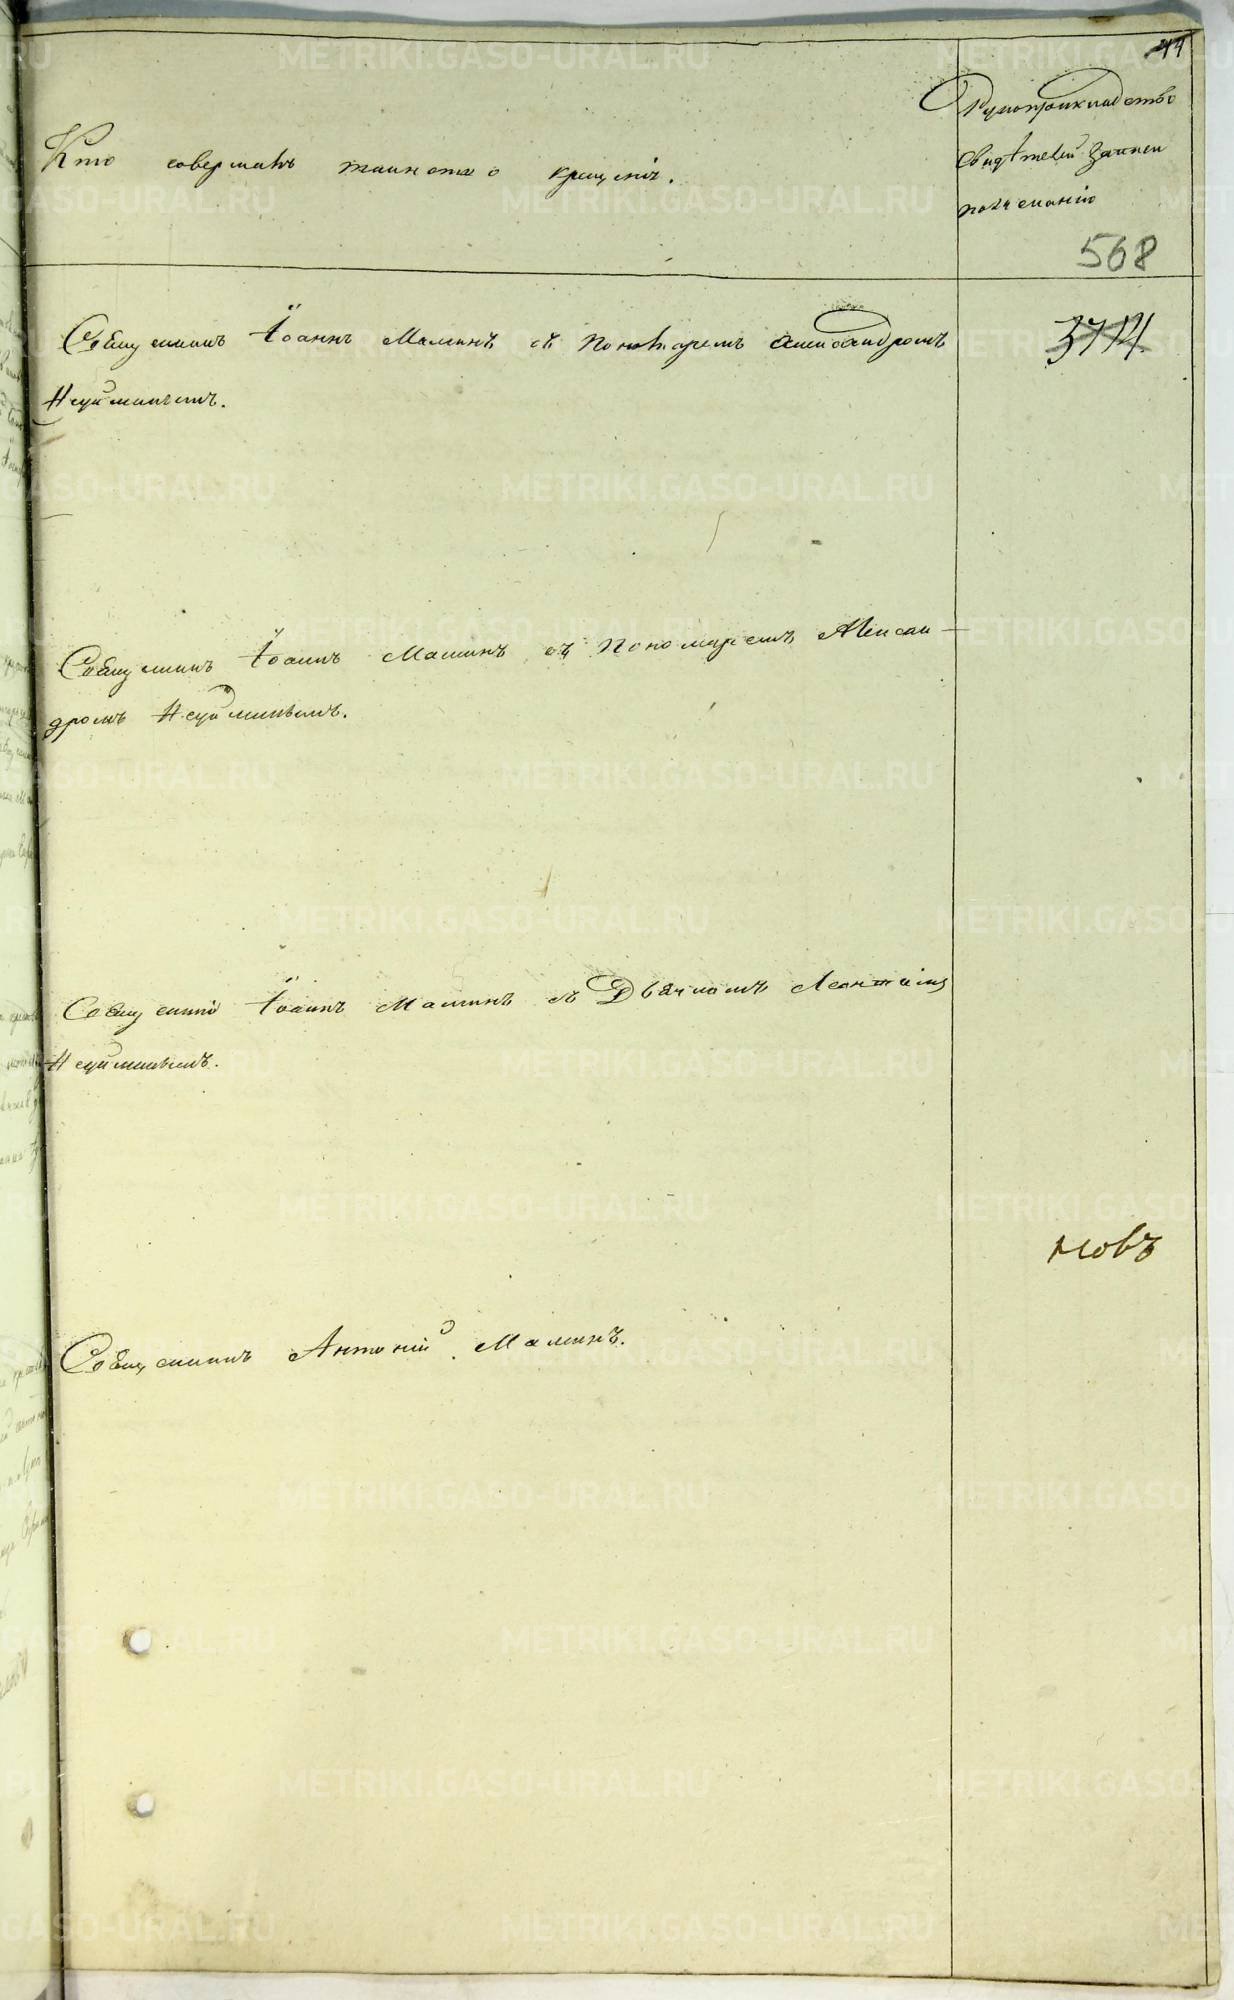 44
Кто совершалъ таинство крещенія.
Рукоприкладство
свидѣтелей записи
по желанію
568
3714
Священникъ Іоаннъ Маминъ съ пономаремъ Александромъ
Неуйминымъ.
Священникъ Іоаннъ Маминъ съ пономаремъ Алексан-
дромъ Неуйминымъ.
Священникъ Іоаннъ Маминъ съ Дьячкомъ Леонтіемъ
Неуйминымъ.
новъ
Священникъ Антоній Маминъ.
METRIKI.GASO-URAL.RU